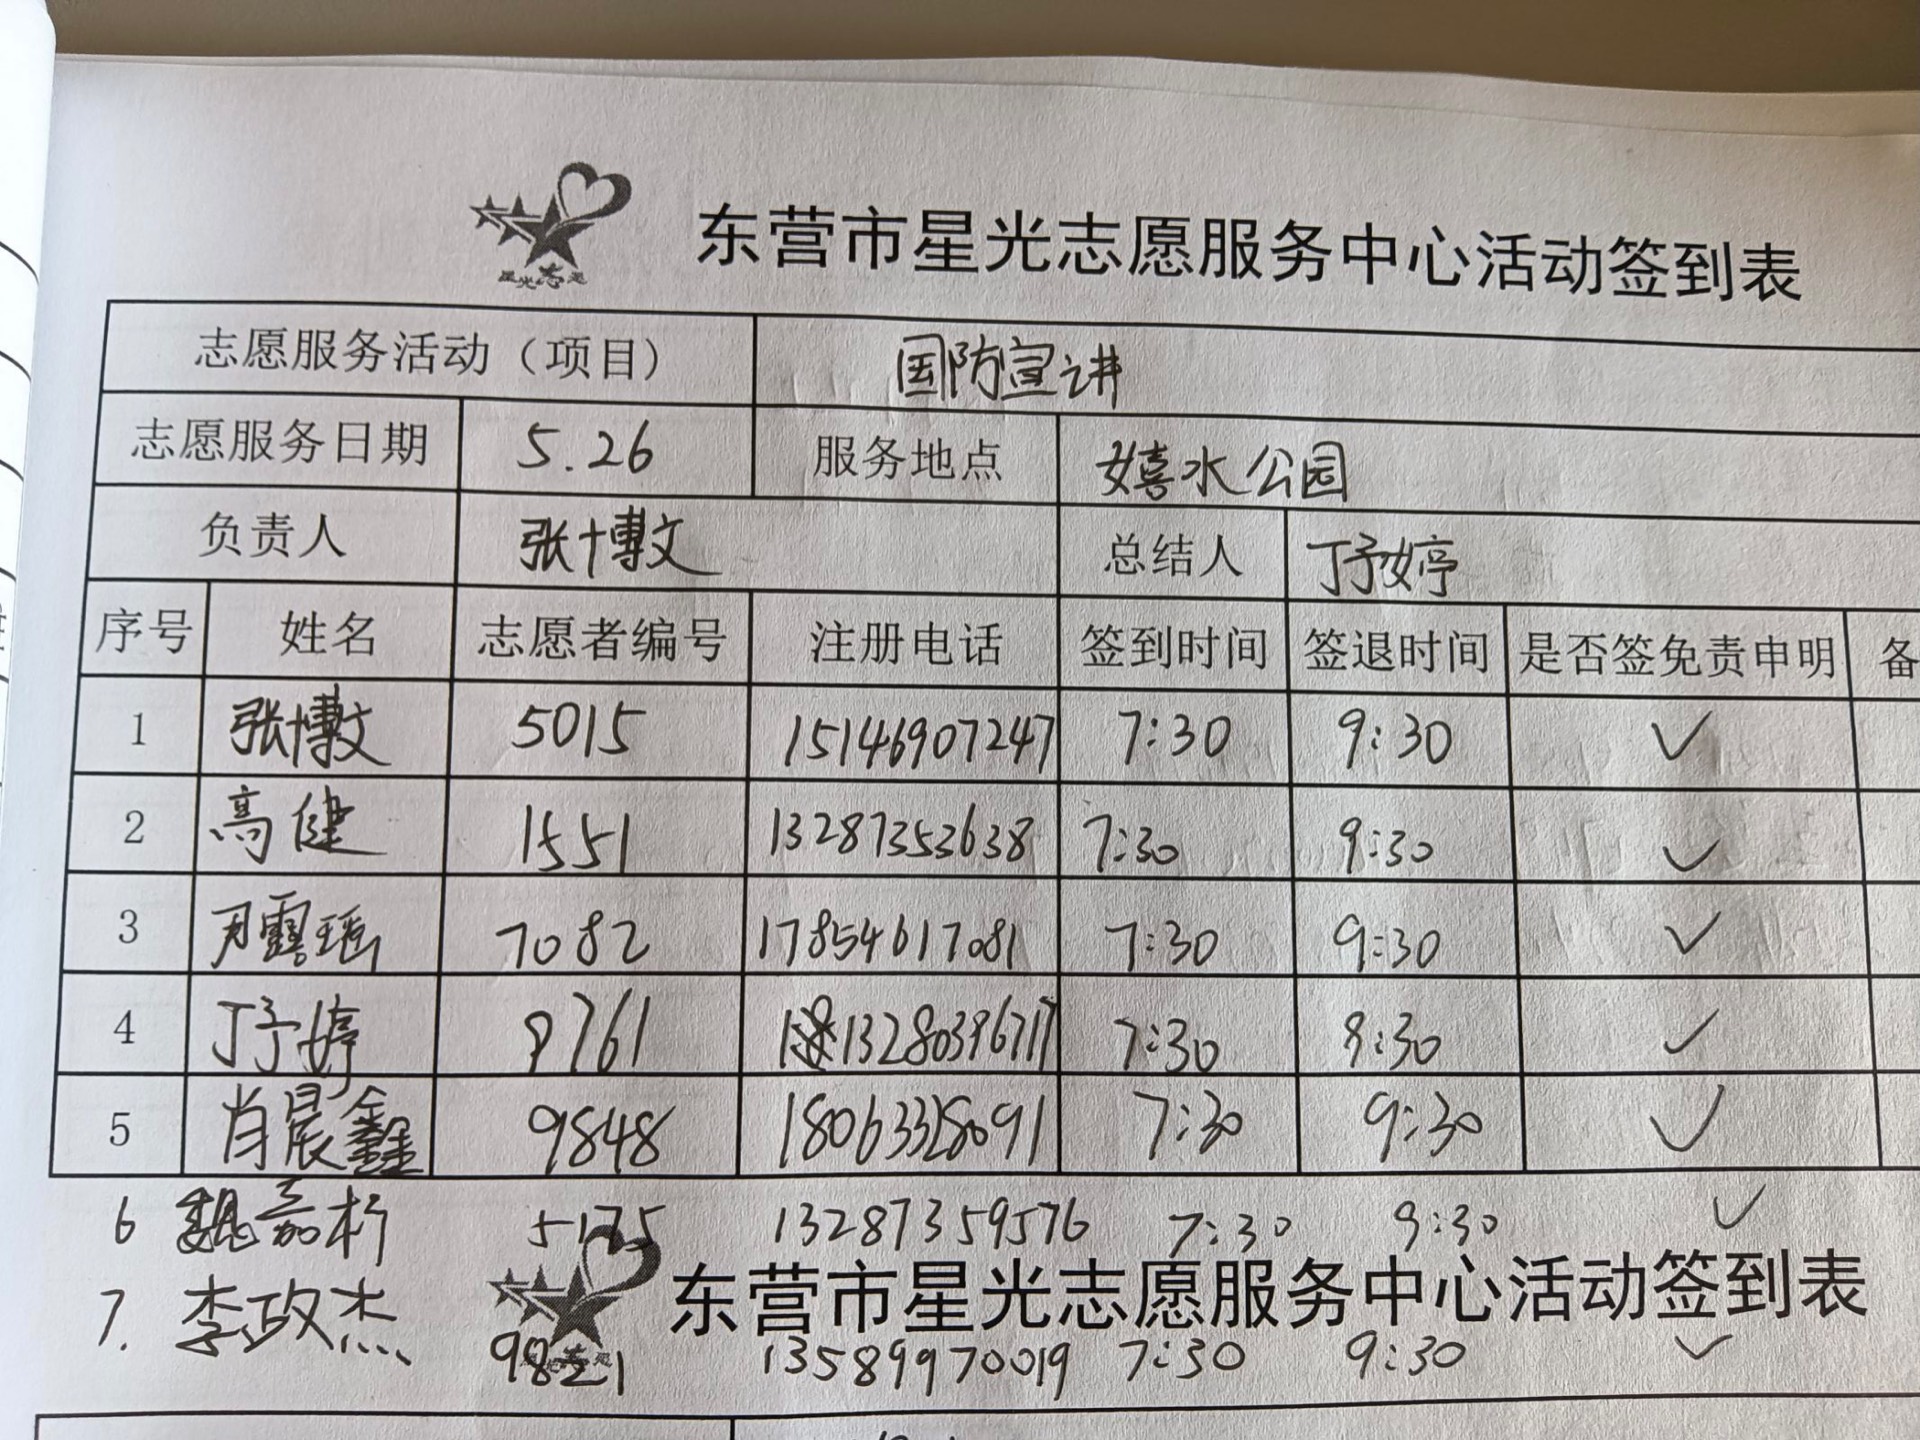 东营市星光志愿服务中心活动签到表
志愿服务活动（项目） 国防宣讲
志愿服务日期 5.26 服务地点 嬉水公园
负责人 张博文 总结人 丁予婷
序号 姓名 志愿者编号 注册电话 签到时间 签退时间 是否签免责申明 备
1 张博文 5015 15146907247 7:30 9:30 ✓
2 高健 1551 13287353638 7:30 9:30 ✓
3 尹露瑶 7082 17854617081 7:30 9:30 ✓
4 丁予婷 9761 13280396717 7:30 9:30 ✓
5 肖晨鑫 9848 18063328091 7:30 9:30 ✓
6 魏嘉析 5175 13287359576 7:30 9:30 ✓
东营市星光志愿服务中心活动签到表
7. 李政杰 9821 13589970019 7:30 9:30 ✓